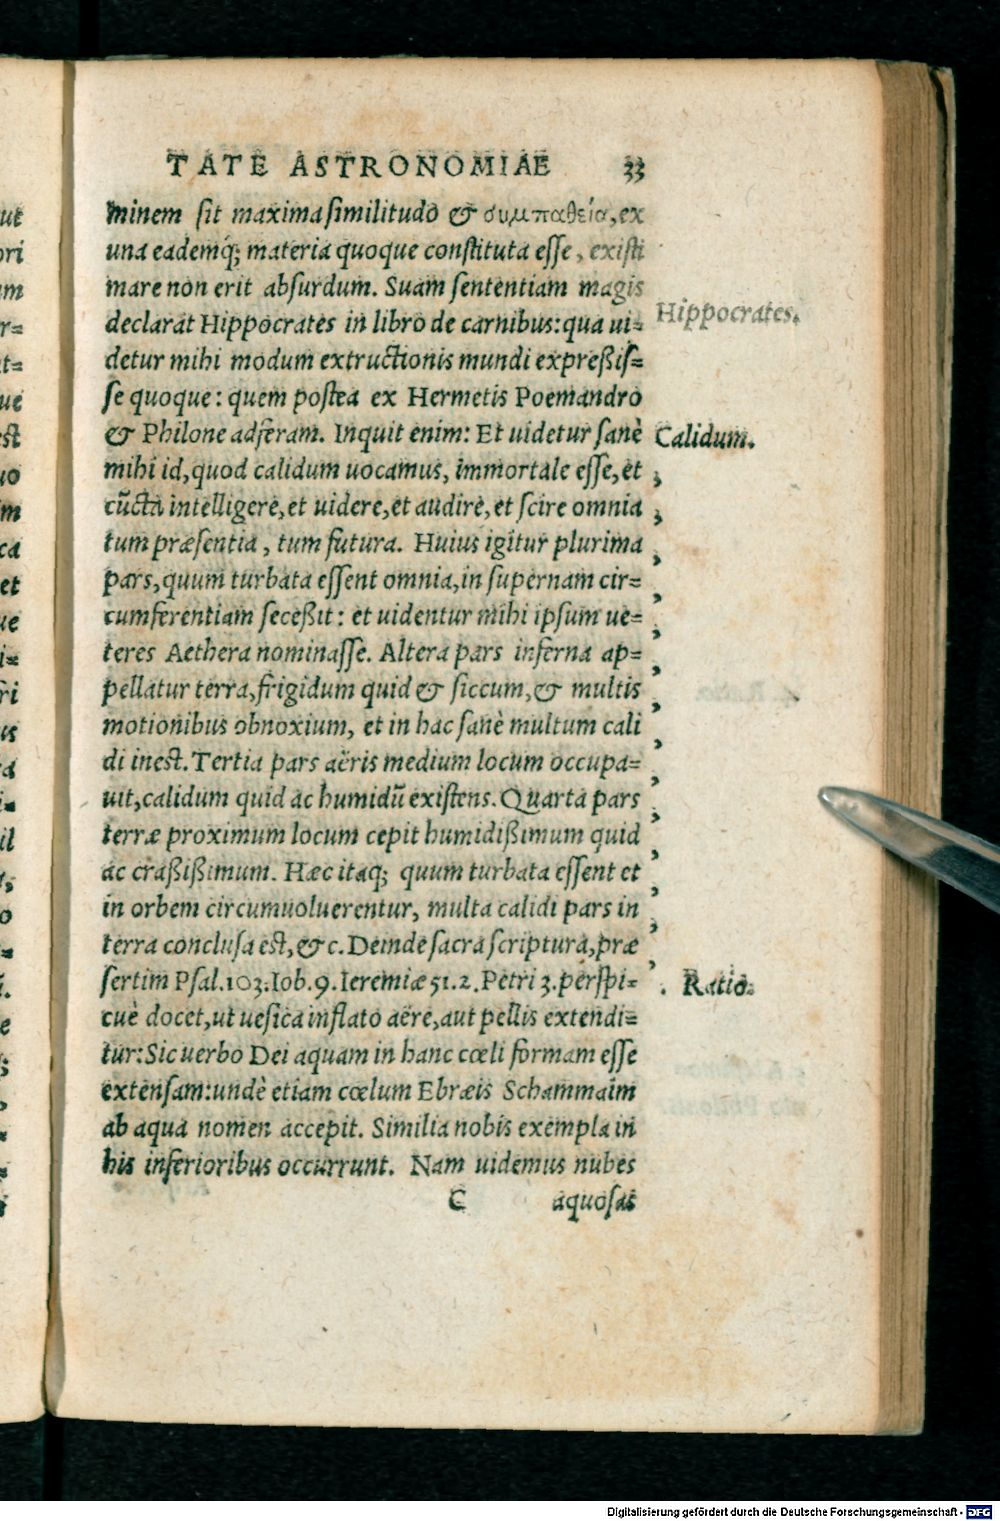 TATE ASTRONOMIAE 33
minem sit maxima similitudo & συμπαθεία, ex
una eademq́; materia quoque constituta esse, existi
mare non erit absurdum. Suam sententiam magis
Hippocrates.
declarat Hippocrates in libro de carnibus: qua ui-
detur mihi modum extructionis mundi expreßis-
se quoque: quem postea ex Hermetis Poemandro
& Philone adferam. Inquit enim: Et uidetur sanè
Calidum.
mihi id, quod calidum uocamus, immortale esse, et
cūcta intelligere, et uidere, et audire, et scire omnia
tum præsentia, tum futura. Huius igitur plurima
pars, quum turbata essent omnia, in supernam cir-
cumferentiam seceßit: et uidentur mihi ipsum ue-
teres Aethera nominasse. Altera pars inferna ap-
pellatur terra, frigidum quid & siccum, & multis
motionibus obnoxium, et in hac sanè multum cali
di inest. Tertia pars aëris medium locum occupa-
uit, calidum quid ac humidū existens. Quarta pars
terræ proximum locum cepit humidißimum quid
ac craßißimum. Hæc itaq; quum turbata essent et
in orbem circumuoluerentur, multa calidi pars in
terra conclusa est, & c. Deinde sacra scriptura, præ
sertim Psal. 103. Iob. 9. Ieremiæ 51. 2. Petri 3. perspi-
Ratio.
cuè docet, ut uesica inflato aëre, aut pellis extendi-
tur: Sic uerbo Dei aquam in hanc cœli formam esse
extensam: undè etiam cœlum Ebræis Schammaim
ab aqua nomen accepit. Similia nobis exempla in
his inferioribus occurrunt. Nam uidemus nubes
C aquosas
Digitalisierung gefördert durch die Deutsche Forschungsgemeinschaft - DFG